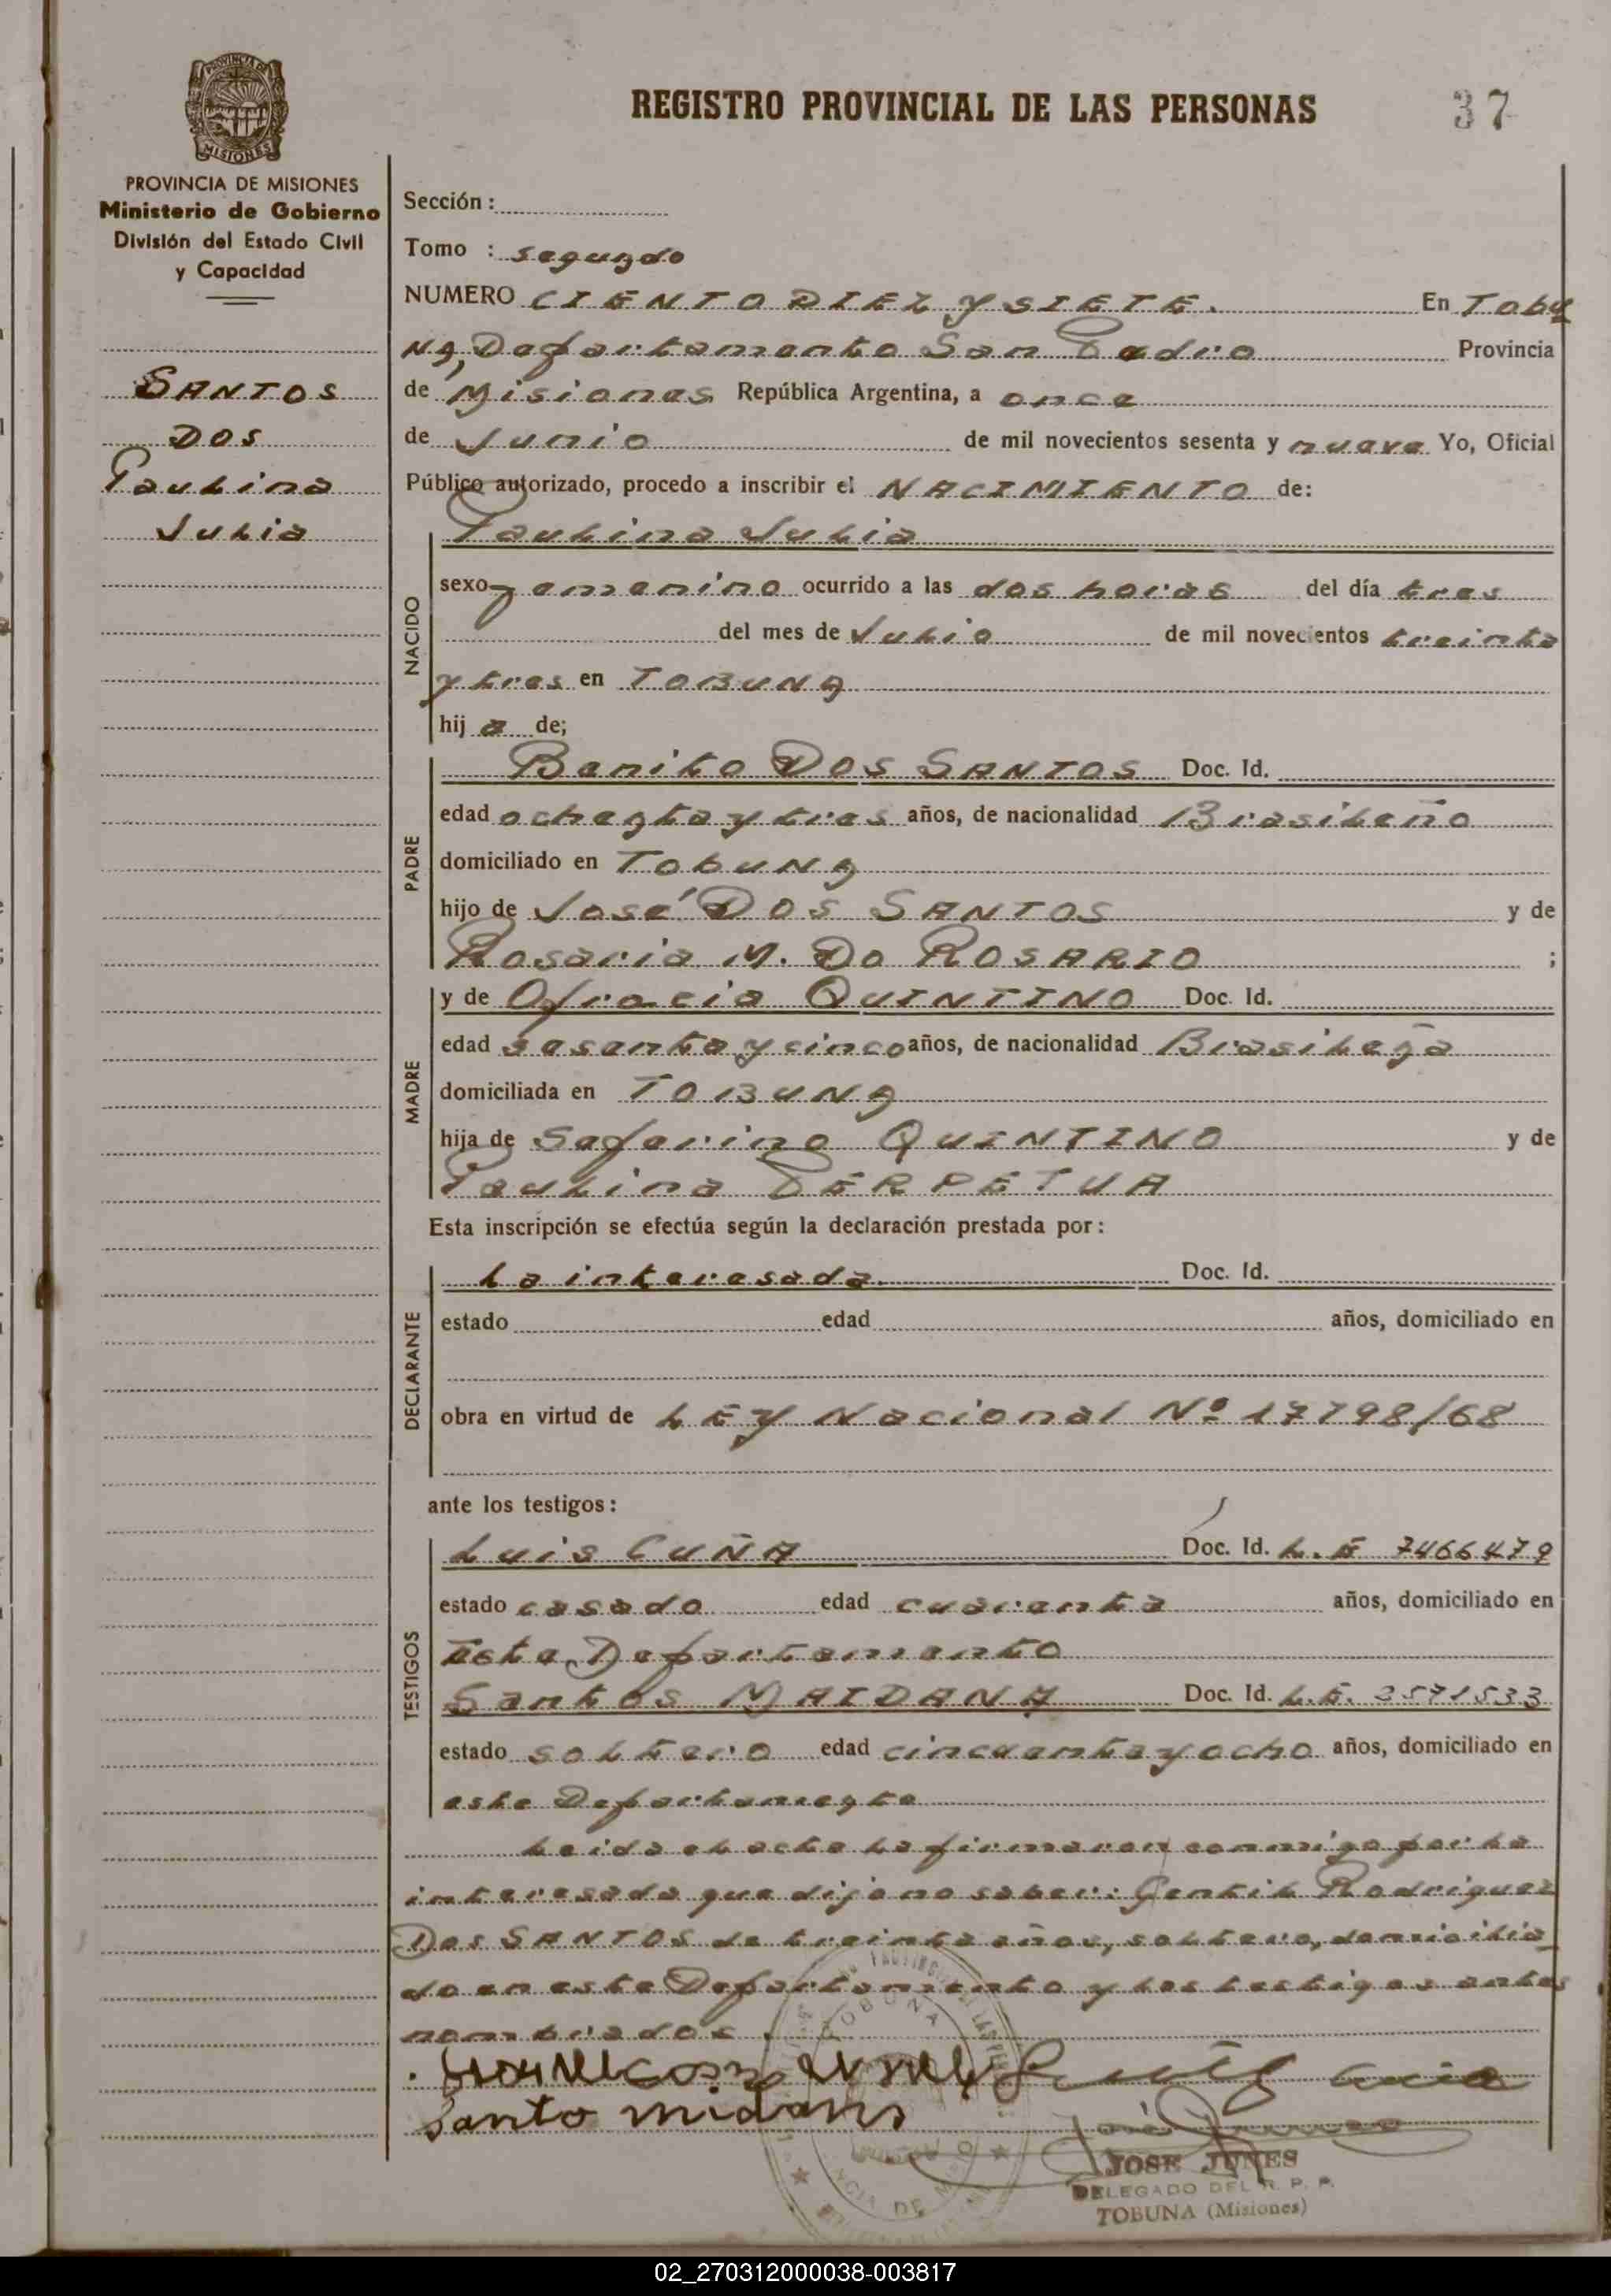 REGISTRO PROVINCIAL DE LAS PERSONAS
37
PROVINCIA DE
MISIONES
PROVINCIA DE MISIONES
Ministerio de Gobierno
División del Estado Civil
y Capacidad
SANTOS
DOS
Paulina
Julia
Sección:
Tomo : segundo
NUMERO CIENTO DIEZ y SIETE. En Tobu
NA, Departamento San Pedro Provincia
de Misiones República Argentina, a once
de Junio de mil novecientos sesenta y nueve Yo, Oficial
Público autorizado, procedo a inscribir el NACIMIENTO de:
Paulina Julia
NACIDO
sexo femenino ocurrido a las dos horas del día tres
del mes de Julio de mil novecientos treinta
y tres en TOBUNA
hij a de;
PADRE
Benito DOS SANTOS Doc. Id.
edad ochenta y tres años, de nacionalidad Brasileño
domiciliado en TobUNA
hijo de José DOS SANTOS y de
Rosaria M. Do ROSARIO ;
MADRE
y de Ofracia QUINTINO Doc. Id.
edad sesenta y cinco años, de nacionalidad Brasileña
domiciliada en TOBUNA
hija de Seferino QUINTINO y de
Paulina PERPETUA
Esta inscripción se efectúa según la declaración prestada por:
DECLARANTE
La interesada. Doc. Id.
estado edad años, domiciliado en
obra en virtud de LEY Nacional Nº 17798/68
ante los testigos:
TESTIGOS
Luis CUÑA Doc. Id. L.E 7466479
estado casado edad cuarenta años, domiciliado en
Este Departamento
Santos MAIDANA Doc. Id. L.E. 2571533
estado soltero edad cincuenta y ocho años, domiciliado en
este Departamento
Leida el acta la firmaron conmigo por la
interesada que dijo no saber: Gentil Rodriguez
Dos SANTOS de treinta años, soltero, domicilia
do en este Departamento y los testigos antes
nombrados.
Santo midana
TOBUNA
JOSE JUNES
DELEGADO DEL R. P. P.
TOBUNA (Misiones)
02_270312000038-003817